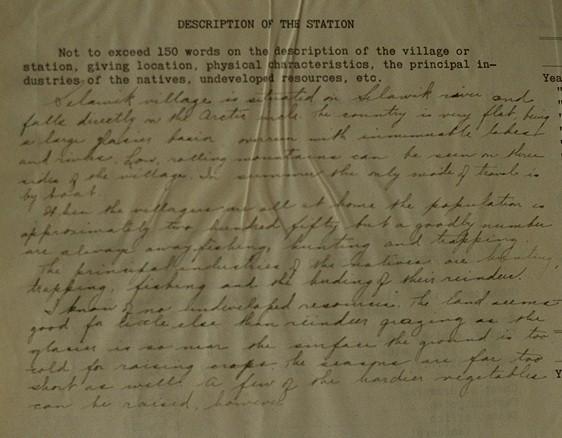 DESCRIPTION OF THE STATION
Not to exceed 150 words on the description of the village or
station, giving location, physical characteristics, the principal in-
dustries of the natives, undeveloped resources, etc.
Yea
Selawik village is situated on Selawik river and
falls directly on the Arctic circle. The country is very flat, being
a large glacier basin overrun with innumerable lakes
and rivers. Low, rolling mountains can be seen on three
sides of the village. In summer the only mode of travel is
by boat.
When the villagers are all at home the population is
approximately two hundred fifty but a goodly number
are always away fishing, hunting and trapping.
The principal industries of the natives are hunting,
trapping, fishing and the herding of their reindeer.
I know of no undeveloped resources. The land seems
good for little else than reindeer grazing as the
glacier is so near the surface the ground is too
cold for raising crops. The seasons are far too
short as well. A few of the hardier vegetables
can be raised, however
Y